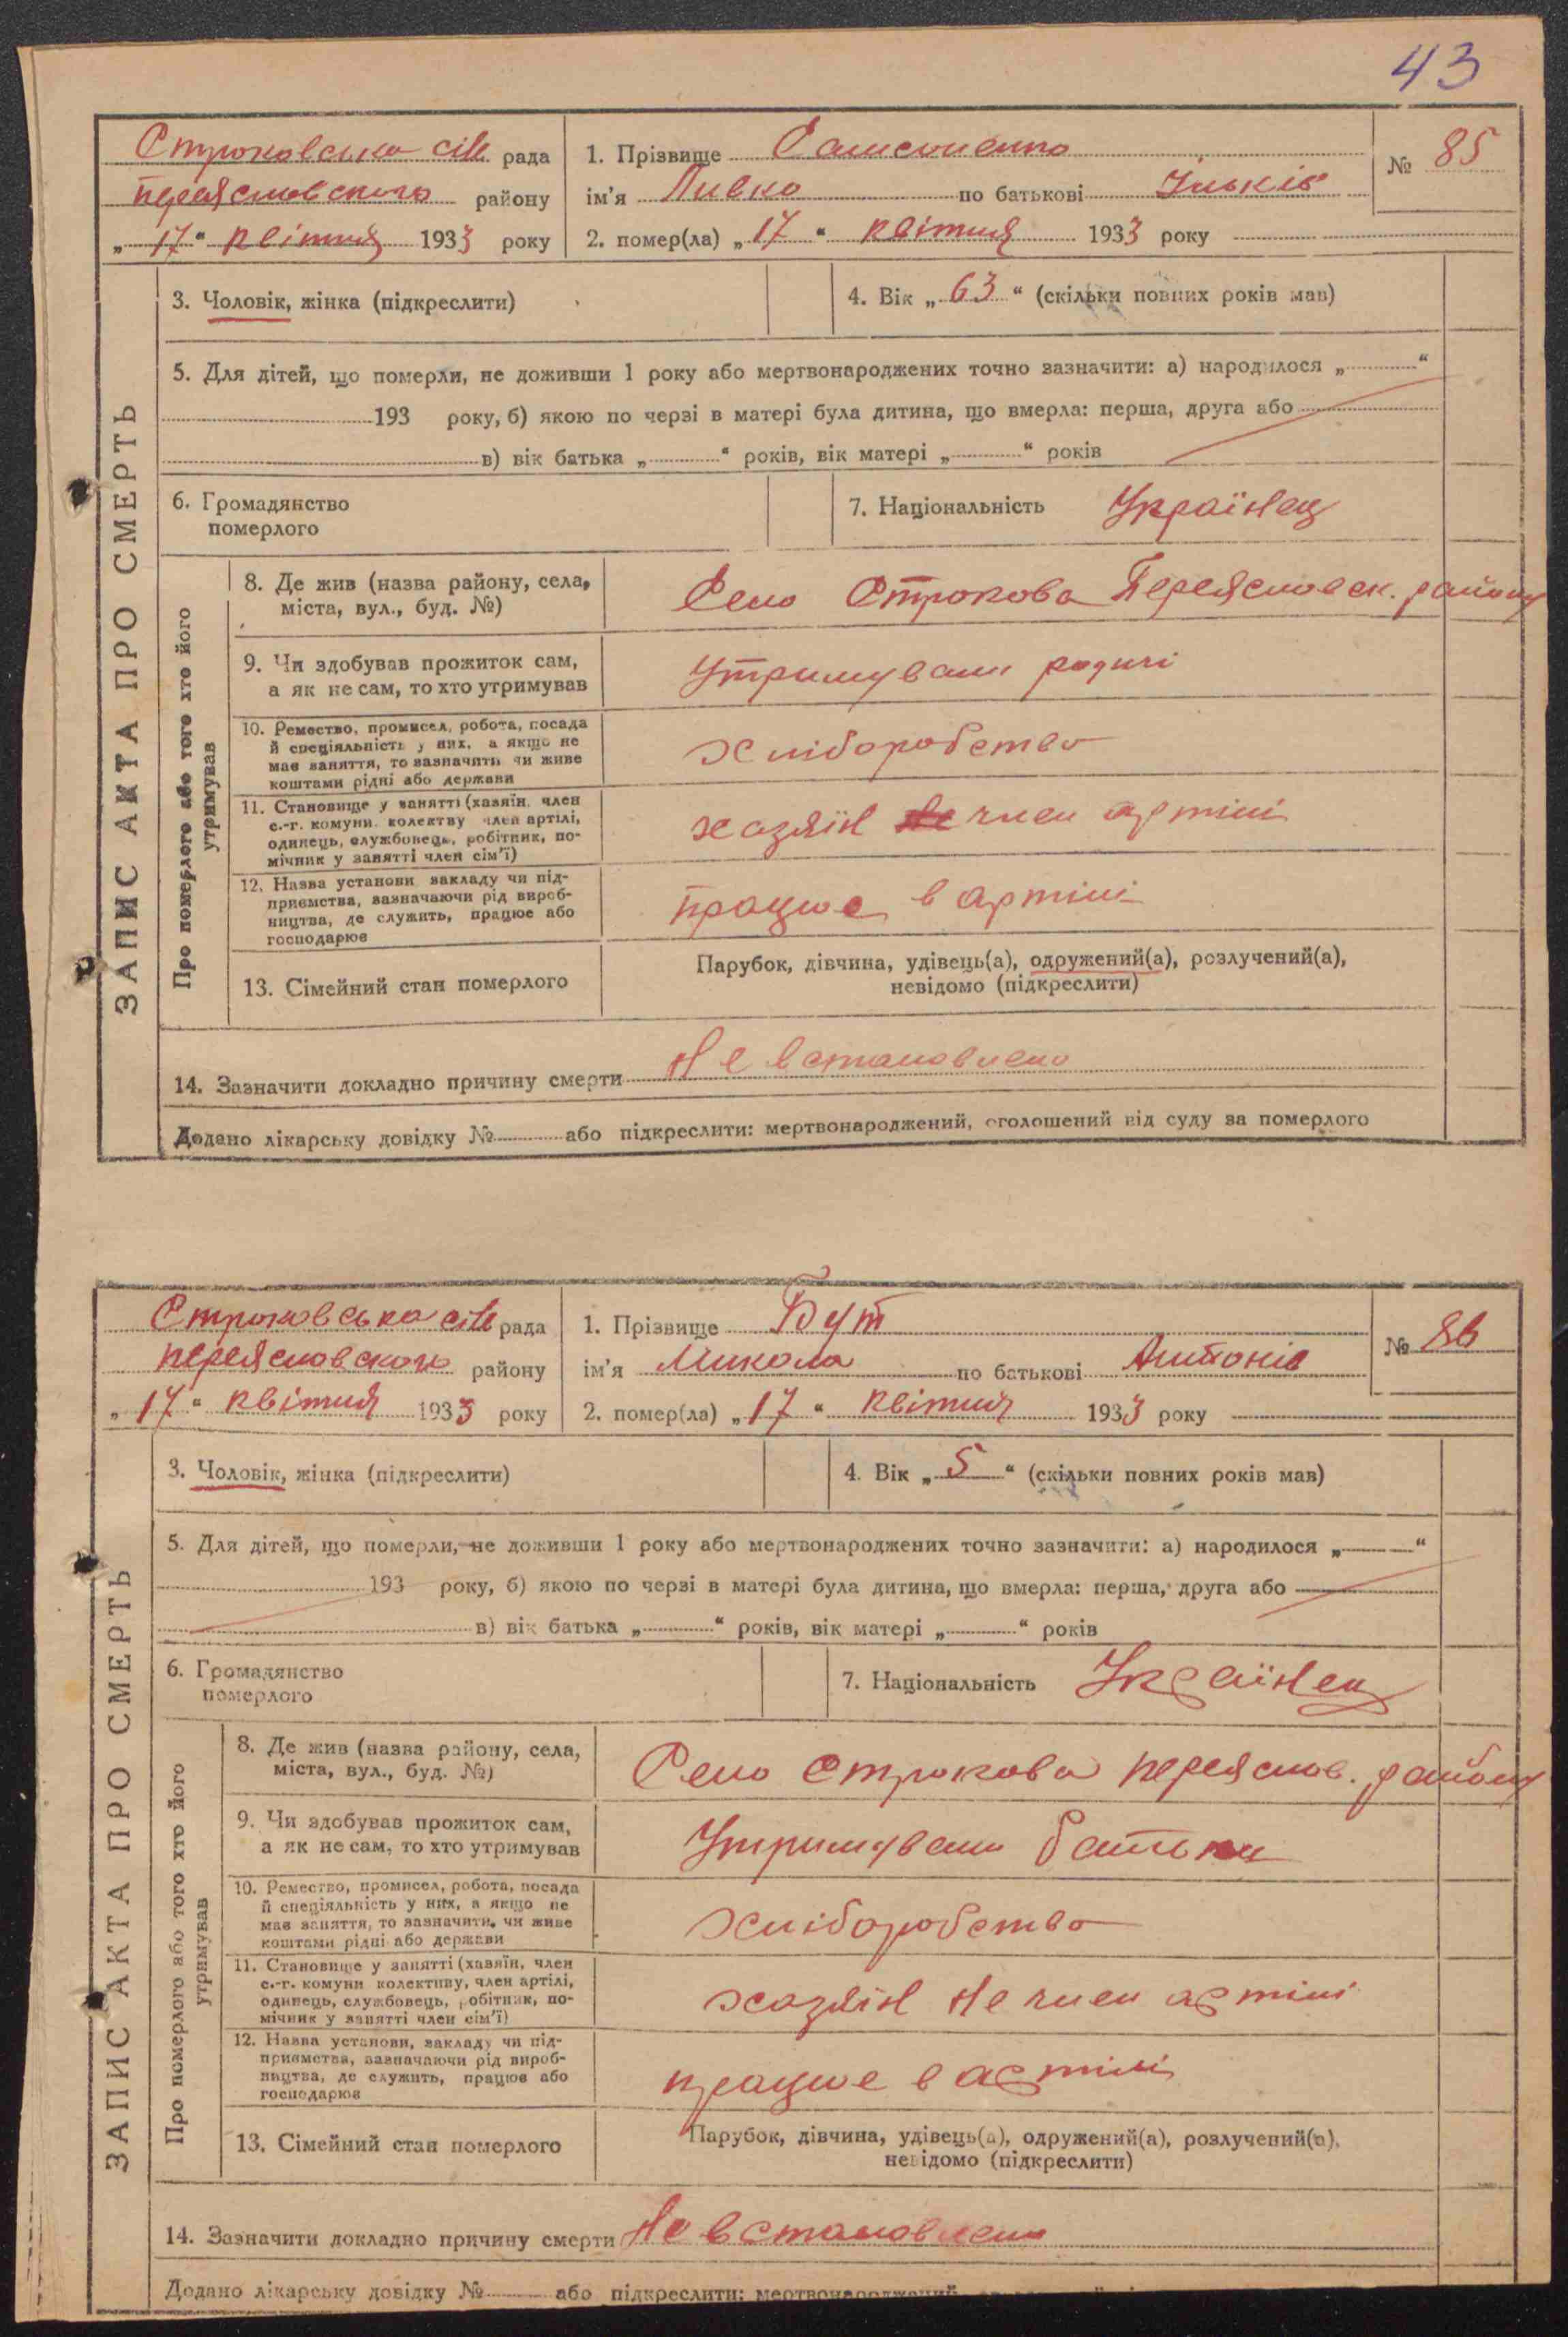 43
Строковська сіл рада
переяславского району
„ 17 “ квітня 1933 року
1. Прізвище Самсоненко
ім'я Ливко по батькові Ільків
2. помер(ла) „ 17 “ квітня 1933 року
№ 85
ЗАПИС АКТА ПРО СМЕРТЬ
3. Чоловік, жінка (підкреслити)
4. Вік „ 63 “ (скільки повних років мав)
5. Для дітей, що померли, не доживши 1 року або мертвонароджених точно зазначити: а) народилося „ “
193 року, б) якою по черзі в матері була дитина, що вмерла: перша, друга або
в) вік батька „ “ років, вік матері „ “ років
6. Громадянство
померлого
7. Національність Українец
Про померлого або того хто його
утримував
8. Де жив (назва району, села,
міста, вул., буд. №)
Село Строкова Переяславск. району
9. Чи здобував прожиток сам,
а як не сам, то хто утримував
Утримували родичі
10. Ремество, промисел, робота, посада
й спеціяльність у них, а якщо не
має заняття, то зазначити чи живе
коштами рідні або держави
хліборобство
11. Становище у занятті (хазяїн, член
с.-г. комуни, колектву член артілі,
одинець, службовець, робітник, по-
мічник у занятті член сім'ї)
хазяїн не член артілі
12. Назва установи закладу чи під-
приємства, зазначаючи рід вироб-
ництва, де служить, працює або
господарює
працює в артілі
13. Сімейний стан померлого
Парубок, дівчина, удівець(а), одружений(а), розлучений(а),
невідомо (підкреслити)
14. Зазначити докладно причину смерти Не встановлено
Додано лікарську довідку № або підкреслити: мертвонароджений, оголошений від суду за померлого
Строковська сіл рада
переяславского району
„ 17 “ квітня 1933 року
1. Прізвище Бут
ім'я Микола по батькові Антонів
2. помер(ла) „ 17 “ квітня 1933 року
№ 86
ЗАПИС АКТА ПРО СМЕРТЬ
3. Чоловік, жінка (підкреслити)
4. Вік „ 5 “ (скільки повних років мав)
5. Для дітей, що померли, не доживши 1 року або мертвонароджених точно зазначити: а) народилося „ “
193 року, б) якою по черзі в матері була дитина, що вмерла: перша, друга або
в) вік батька „ “ років, вік матері „ “ років
6. Громадянство
померлого
7. Національність Українец
Про померлого або того хто його
утримував
8. Де жив (назва району, села,
міста, вул., буд. №)
Село Строкова переяслав. району
9. Чи здобував прожиток сам,
а як не сам, то хто утримував
Утримували батьки
10. Ремество, промисел, робота, посада
й спеціяльність у них, а якщо не
має заняття, то зазначити, чи живе
коштами рідні або держави
хліборобство
11. Становище у занятті (хазяїн, член
с.-г. комуни колективу, член артілі,
одинець, службовець, робітник, по-
мічник у занятті член сім'ї)
хазяїн не член артілі
12. Назва установи, закладу чи під-
приємства, зазначаючи рід вироб-
ництва, де служить, працює або
господарює
працює в артілі
13. Сімейний стан померлого
Парубок, дівчина, удівець(а), одружений(а), розлучений(а),
невідомо (підкреслити)
14. Зазначити докладно причину смерти Не встановлено
Додано лікарську довідку № або підкреслити: мертвонароджений